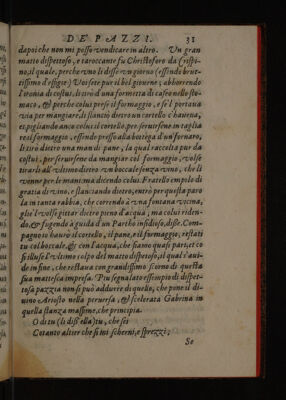 DE PAZZI. 31
dapoi che non mi posso vendicare in altro. Un gran
matto dispettoso, e taroccante fu Christoforo da Crispi-
no; il quale, perche vno li disse vn giorno (essendo brut-
tissimo d'effigie) Voi sete pur il bel giouene; abborrendo
l'ironia di costui, li tirò d'una formetta di cafeo nello sto-
maco, & perche colui prese il formaggio, e se'l portaua
via per mangiare, li slanciò dietro un cortello c'haueua,
et pogliando anco colui il cortello per seruirsene in taglia
re il formaggio, essendo presso alla bottega d'un fornaro,
li tirò dietro una man di pane, la qual raccolta pur da
costui, per seruirsene da mangiar col formaggio, volse
tirarli all'vltimo dietro vn boccale senza vino, che li
venne per le mani; ma dicendo colui. Fratello empilo di
gratia di vino, e slanciando dietro, entrò per questa paro
la in tanta rabbia, che correndo à vna fontana vicina,
glie l volse gittar dietro pieno d'acqua; ma colui riden-
do, & fugendo à guida d'un Partho infidioso, disse. Com-
pagno io hauro il cortello, il pane, e il formaggio, restati
tu col boccale, & con l'acqua, che siamo quasi pari; et co
si illuse l'vltimo colpo del matto dispettoso, il qual s'aui-
de in fine, che restaua con grandissimo scorno di questa
sua mattesca impresa. Piu segnalato essempio di dispet-
tosa pazzia non si può addurre di quello, che pone il di-
uino Ariosto nella peruersa, & scelerata Gabrina in
quella stanza massime, che principia.
O di tu (li diss'ella) tu, che sei
Cotanto altier che sì mi scherni, e sprezzi;
Se